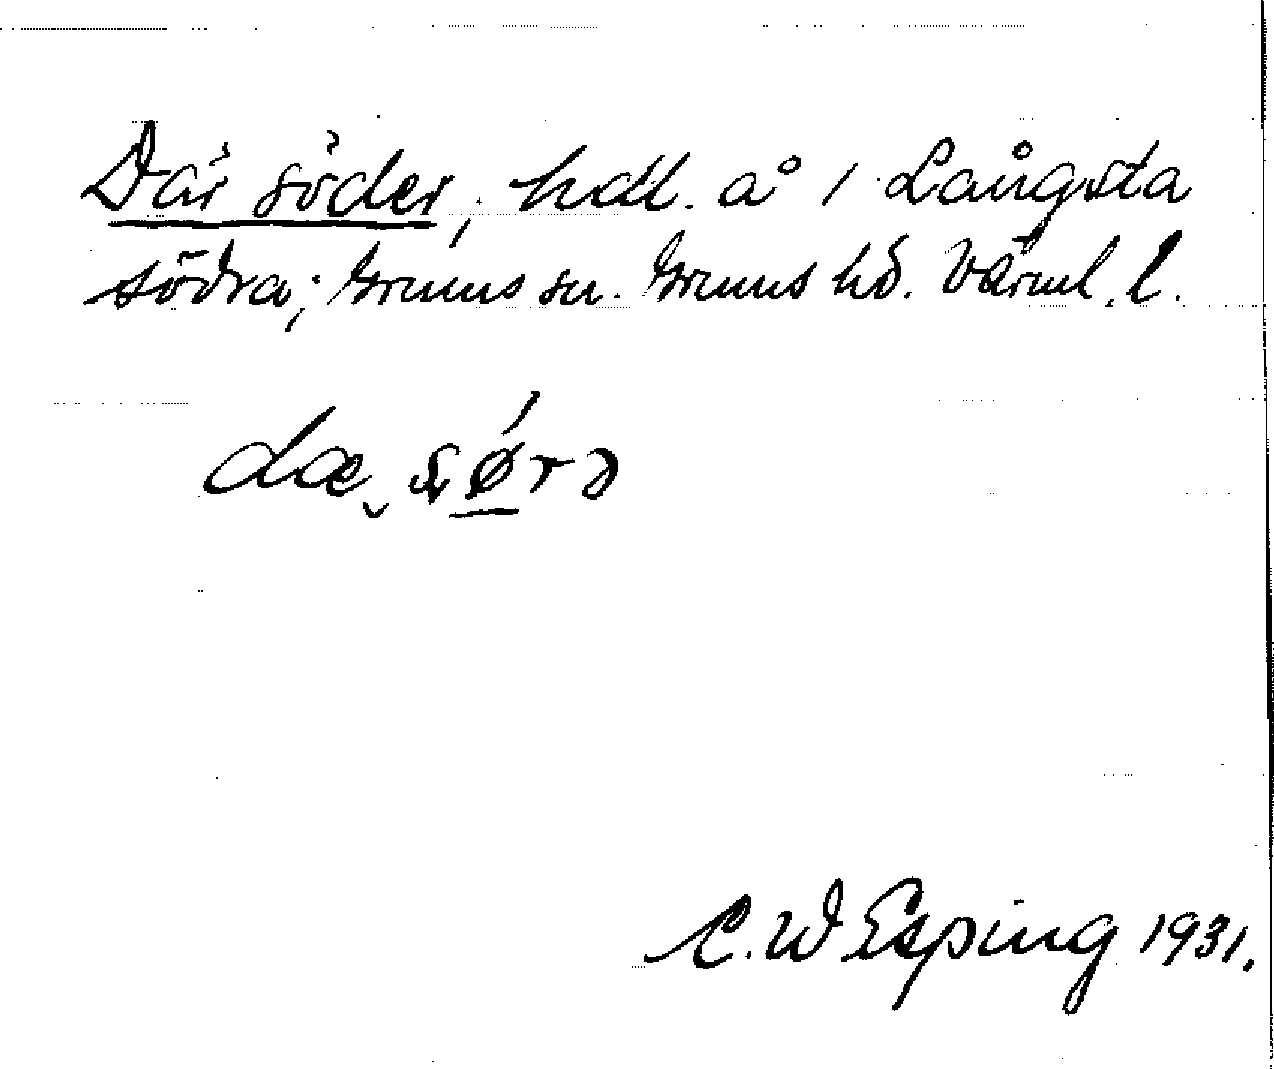 Där söder, hdl. å i Långsta
södra; Grums sn. Grums hd. Värml. l.
dæ sǿrə
C. W Esping 1931.